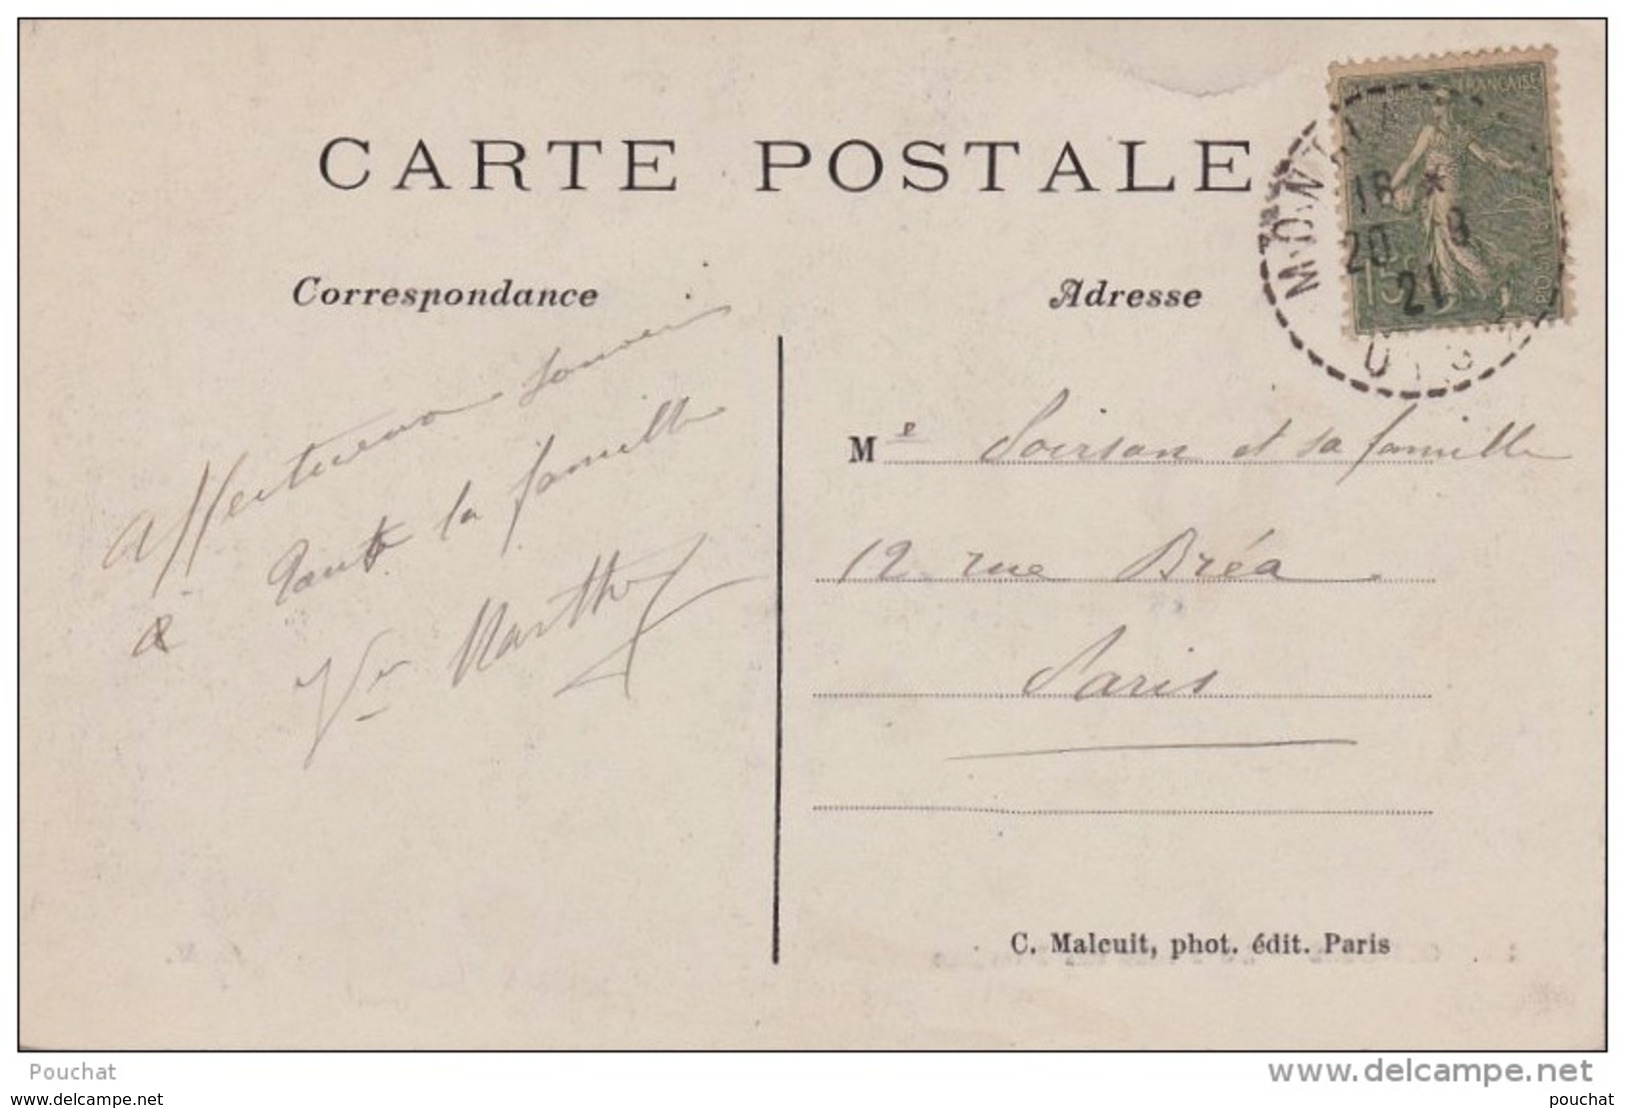 CARTE POSTALE
Correspondance
Adresse
18 *
20 9
21
15c
FRANÇAISE
Affectueux souvenir
à toute la famille
Vve Marthe
Me Soirson et sa famille
12 rue Bréa
Paris
C. Malcuit, phot. édit. Paris
Pouchat
www.delcampe.net
delcampe.net
pouchat